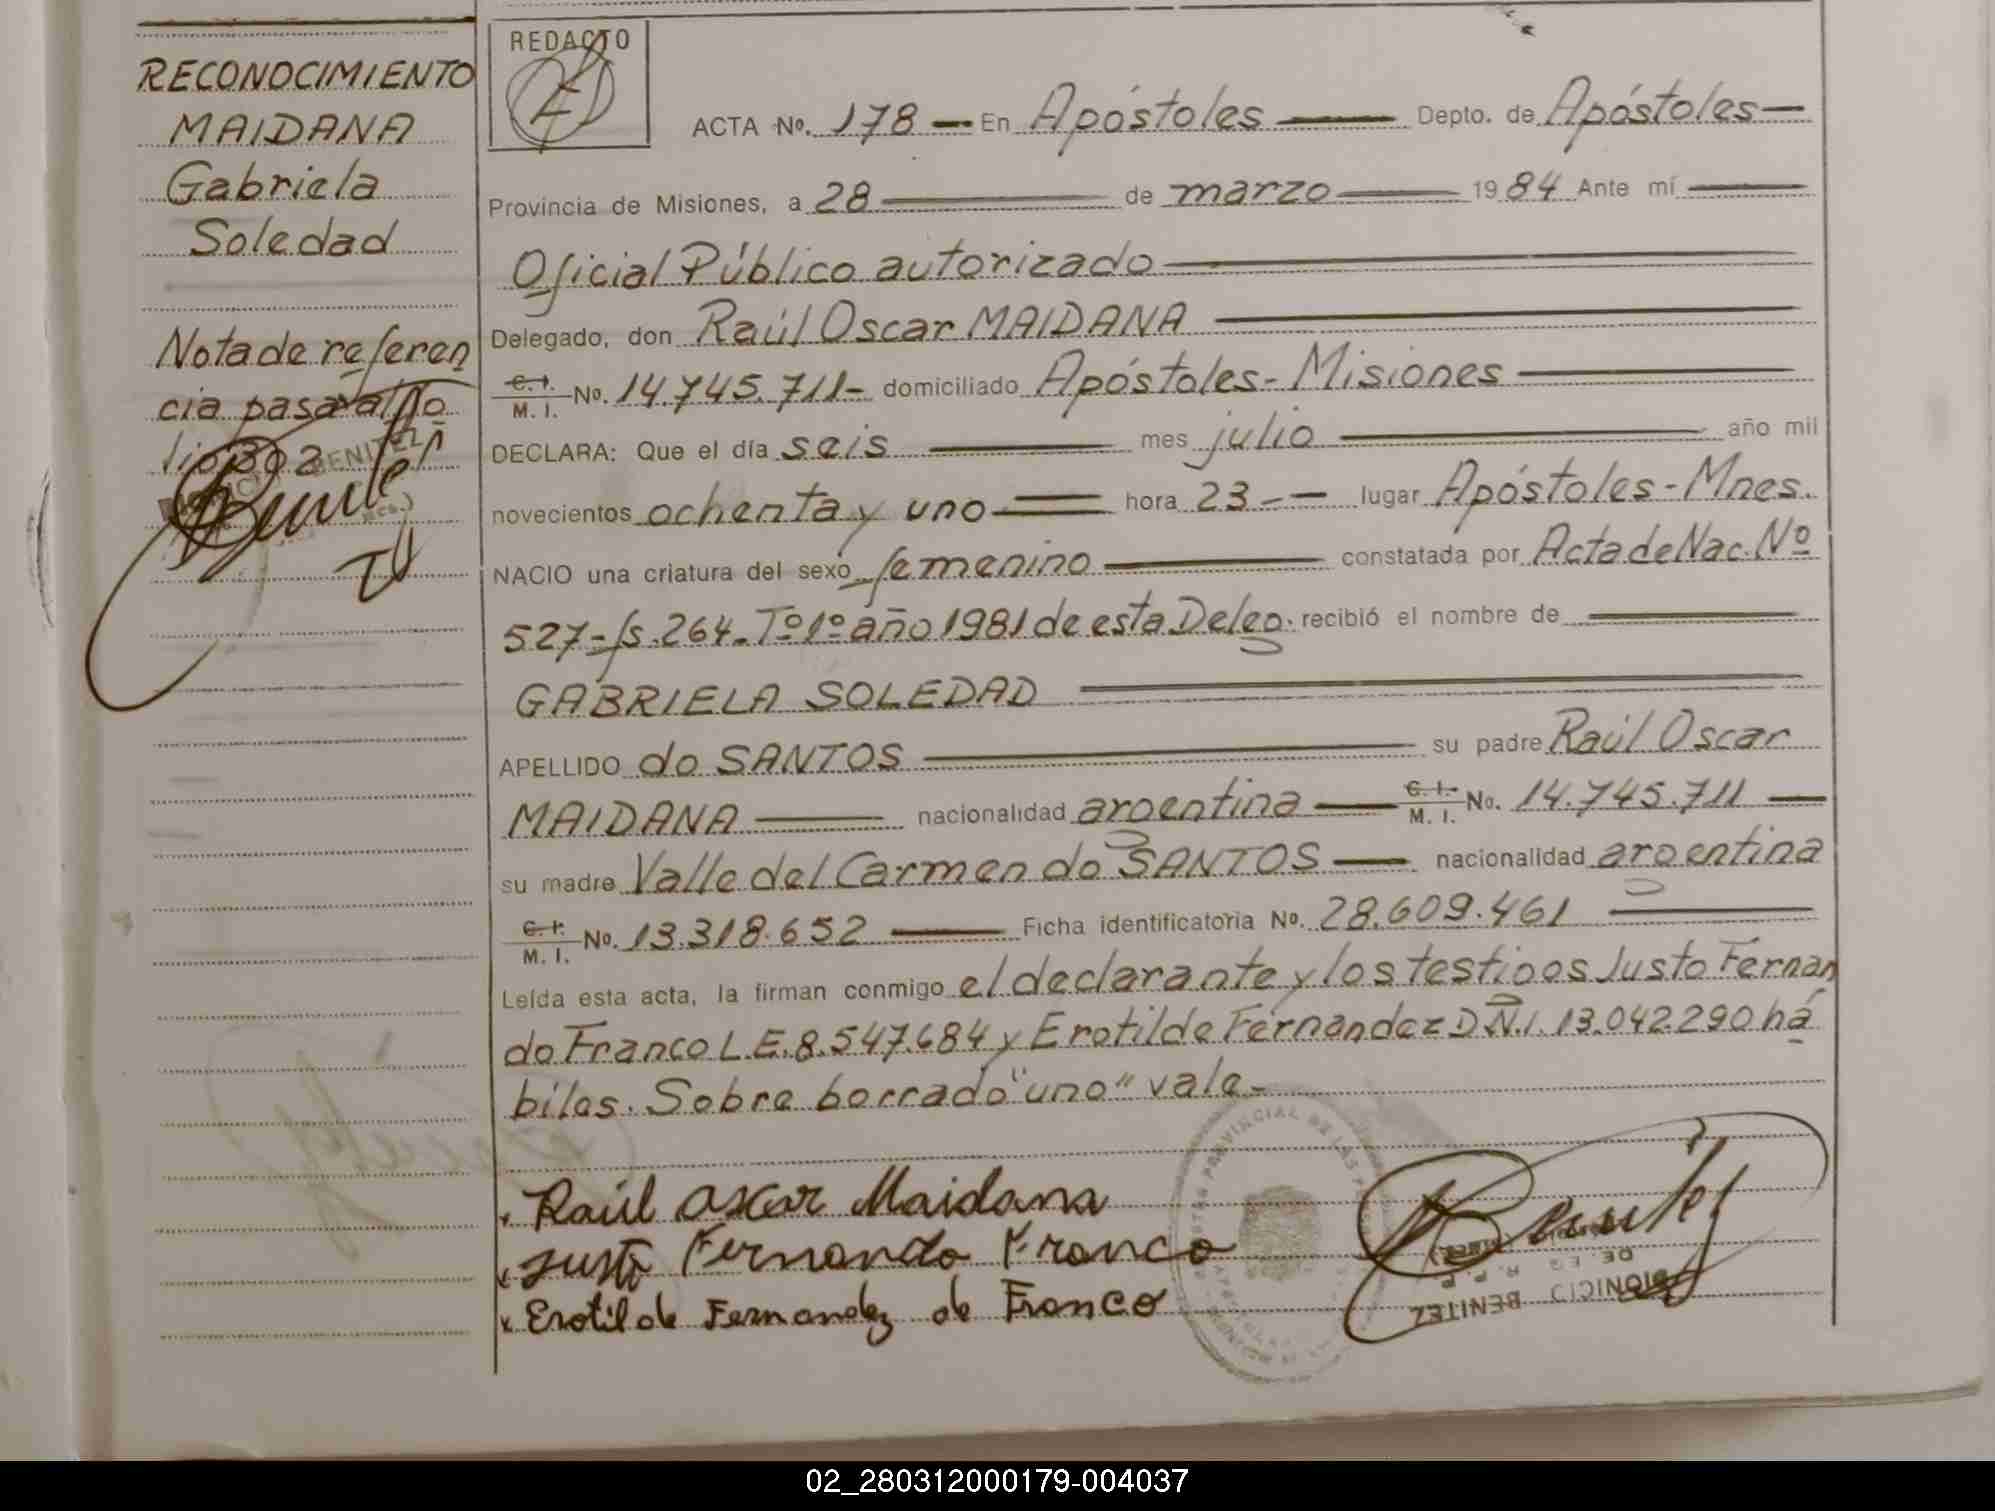 RECONOCIMIENTO
MAIDANA
Gabriela
Soledad
Nota de referen
cia pasa al fo
lio 302
BENITEZ
REDACTO
ACTA No. 178 — En Apóstoles — Depto. de Apóstoles —
Provincia de Misiones, a 28 — de marzo — 1984 Ante mí —
Oficial Público autorizado —
Delegado, don Raúl Oscar MAIDANA —
C. I. M. I. No. 14.745.711- domiciliado Apóstoles - Misiones —
DECLARA: Que el día seis — mes julio — año mil
novecientos ochenta y uno — hora 23 -- lugar Apóstoles - Mnes.
NACIO una criatura del sexo femenino — constatada por Acta de Nac. Nº
527-fs.264. Tº1º año 1981 de esta Deleg. recibió el nombre de —
GABRIELA SOLEDAD —
APELLIDO do SANTOS — su padre Raúl Oscar
MAIDANA — nacionalidad argentina — C. I. M. I. No. 14.745.711 —
su madre Valle del Carmen do SANTOS — nacionalidad argentina
C. I. M. I. No. 13.318.652 — Ficha identificatoria No. 28.609.461 —
Leída esta acta, la firman conmigo el declarante y los testigos Justo Fernan
do Franco L.E. 8.547.684 y Erotilde Fernandez D.N.I. 13.042.290 há
biles. Sobre borrado "uno" vale-
Raúl Oscar Maidana
Justo Fernando Franco
Erotilde Fernandez de Franco
DIONICIO BENITEZ
02_280312000179-004037